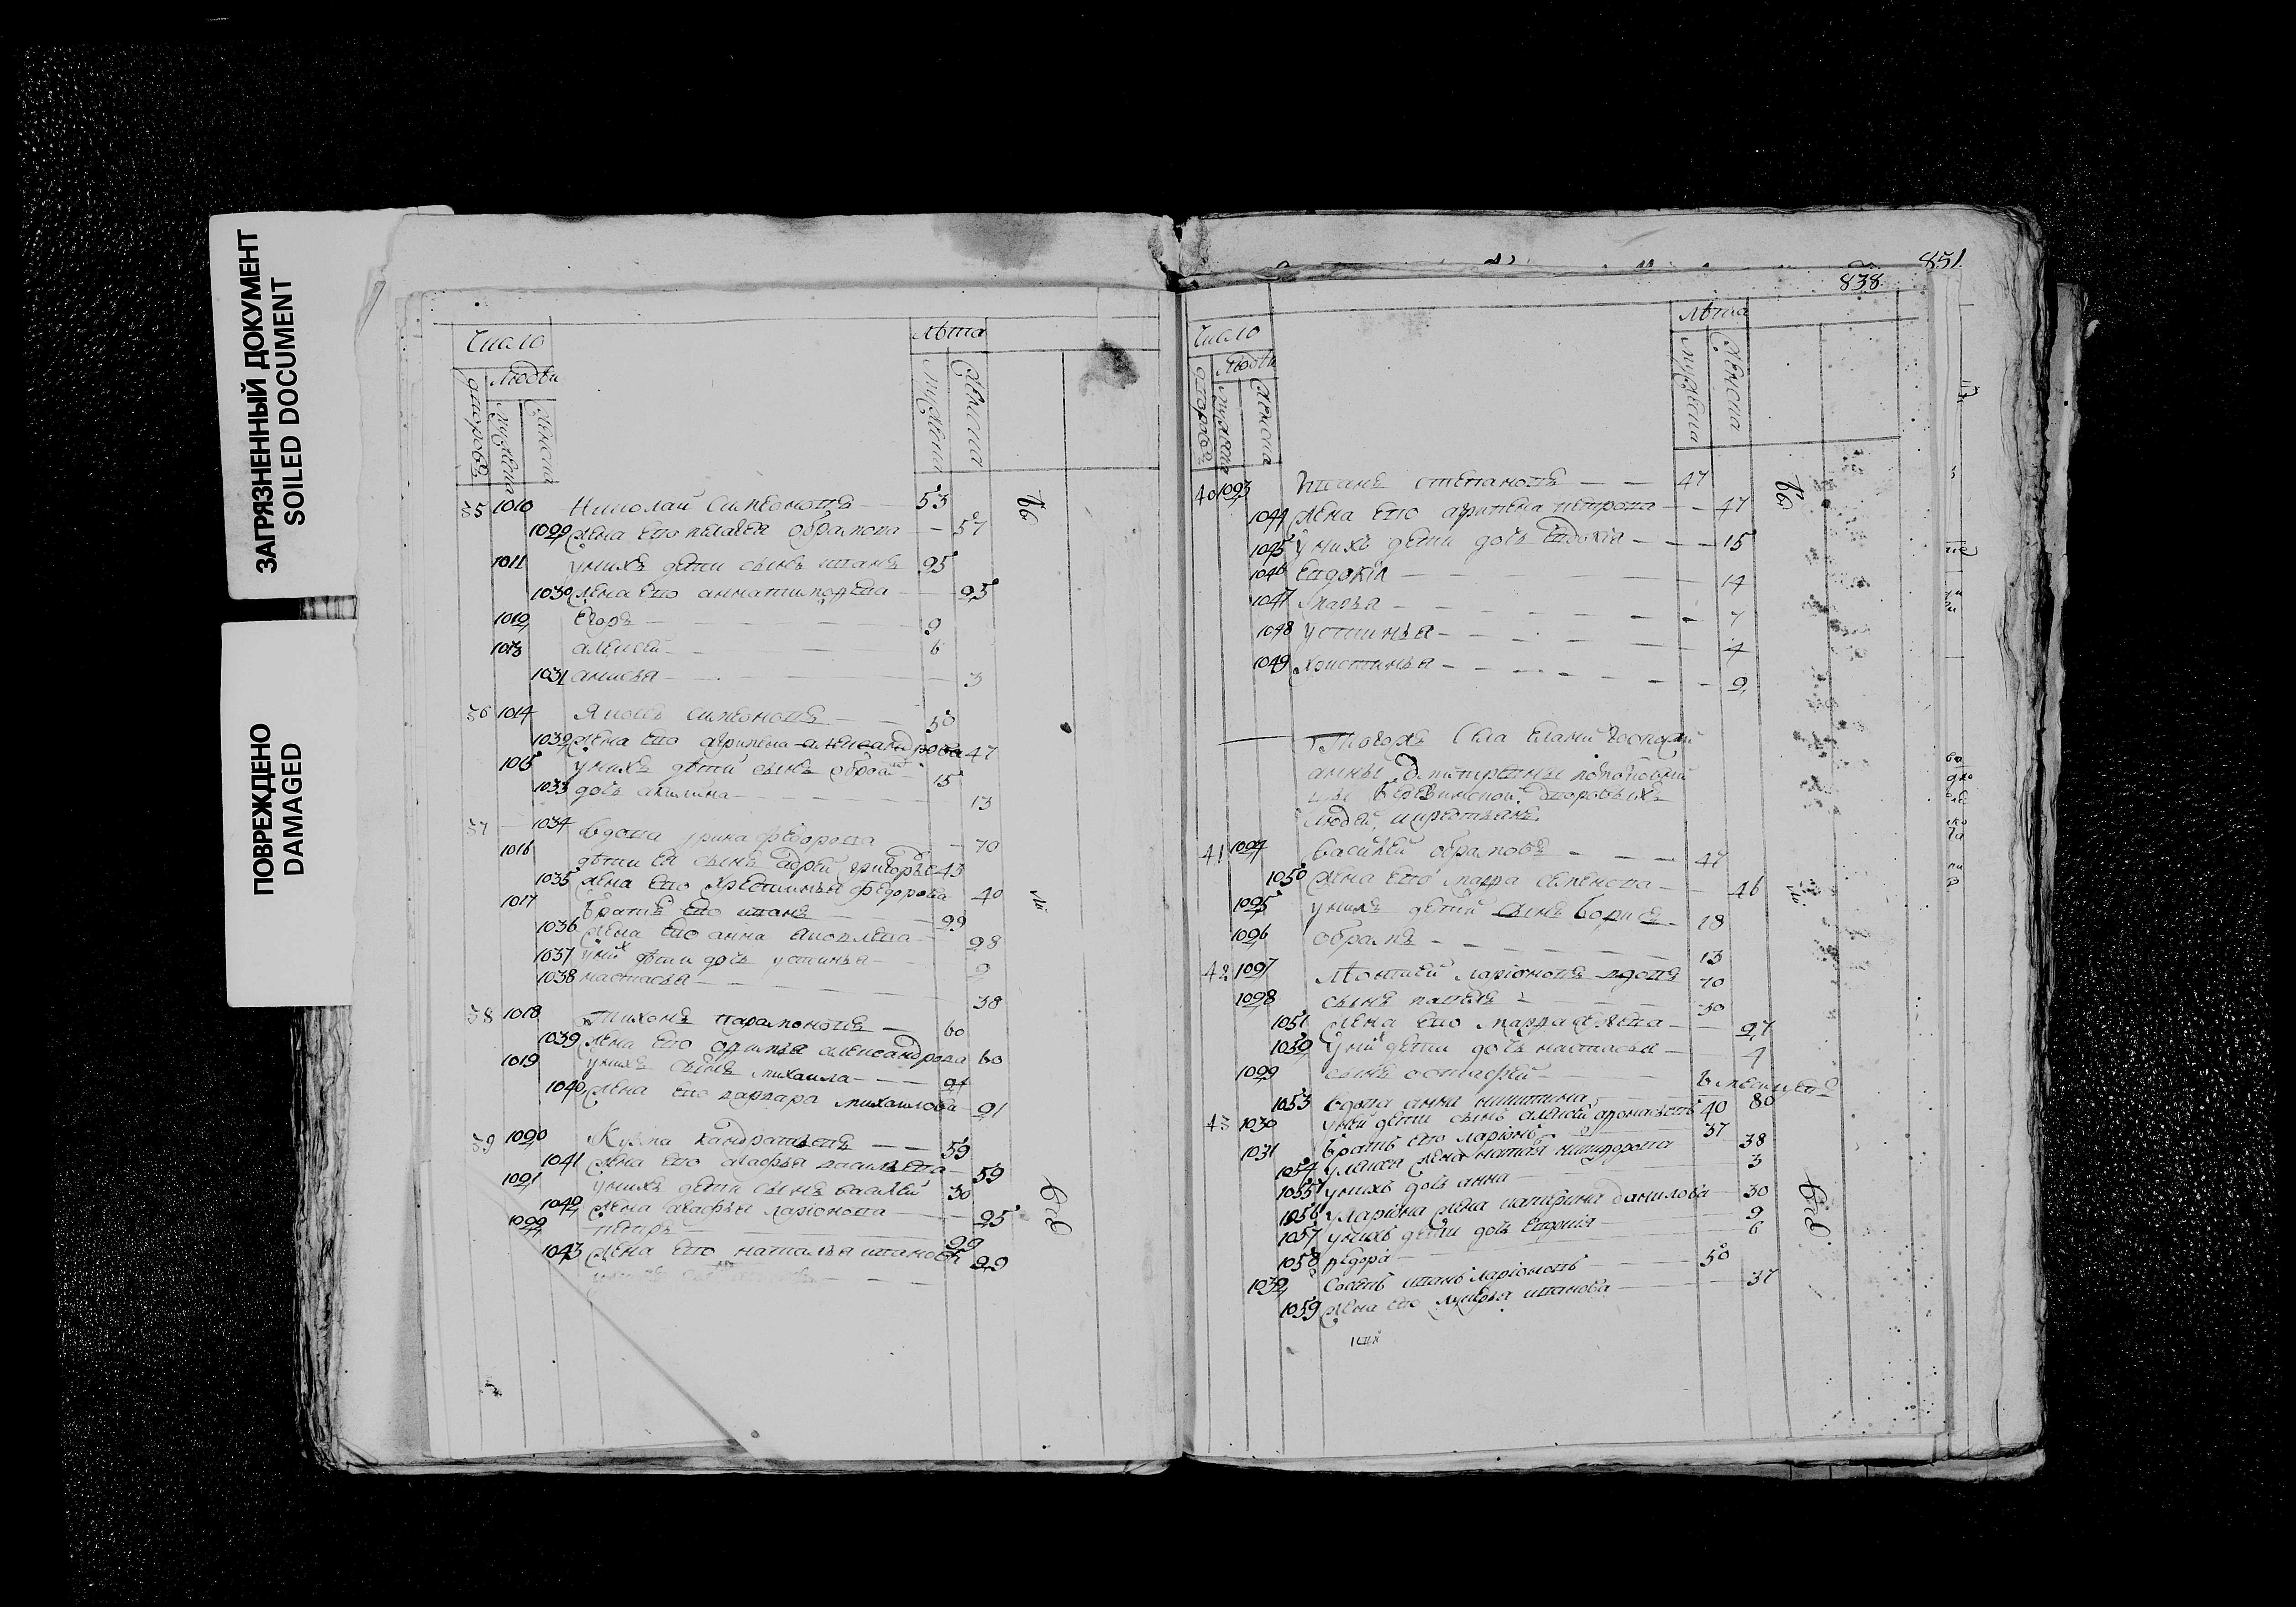 ЗАГРЯЗНЕННЫЙ ДОКУМЕНТ
SOILED DOCUMENT
ПОВРЕЖДЕНО
DAMAGED
Число
Людѣи
дворовъ
мужеска
женска
Лѣта
мужеска
женска
35 1010 Николай Симеоновъ 53
1029 жена ево пелагея обрамова 57
1011 у нихъ дети сынъ иванъ 25
1030 жена ево анна тимофеева 25
1012 Егоръ 9
1013 алексей 6
1031 анисья 3
36 1014 Яковъ Симеоновъ 50
1032 жена ево агрипена александрова 47
1015 у нихъ дѣти сынъ обрам 15
1033 дочь акилина 13
37 1034 вдова ирина федорова 70
1016 дѣти ея сынъ андрей григорьев 43
1035 жена ево христинья федорова 40
1017 братъ ево иванъ 29
1036 жена ево анна яковлева 28
1037 у них дѣти дочь устинья 9
1038 настасья 38
38 1018 Тихонъ парамоновъ 60
1039 жена ево александрова 60
1019 у нихъ сынъ михаила 24
1040 жена ево варвара михаилова 21
39 1020 Кузма кандратьевъ 59
1041 жена ево агафья васильева 59
1021 у нихъ дети сынъ василей 30
1042 жена агафья ларионова 25
1022 петръ 22
1043 жена ево наталья иванова 22
851
838
Число
Людѣи
дворовъ
мужеска
женска
Лѣта
мужеска
женска
40 1023 Иванъ степановъ 47
1044 жена ево агрипена петрова 47
1045 у нихъ дети дочь Евдокия 15
1046 Евдокия 14
1047 марья 7
1048 устинья 4
1049 христинья 2
Тогожъ Села госпожи
анны Дмитревны
дворовыхъ
людей, и крестьянъ.
41 1024 Василей обрамовъ 47
1050 жена ево марфа семенова 46
1025 у нихъ детей сынъ борисъ 18
1026 обрамъ 13
42 1027 Леонтей ларионовъ вдовъ 70
1028 сынъ павелъ 30
1051 жена ево марфа 27
1052 у них дети дочь настасья 4
1029 сынъ остафей
1053 вдова анна никитина 80
43 1030 у ней дети сынъ алексей 40
1031 братъ ево ларионъ 37
1054 у алексея жена наталья никифорова 38
1055 у нихъ дочь анна 3
1056 у лариона жена катерина данилова 30
1057 у нихъ дети дочь Евдокия 9
1058 федора 6
1032 иванъ ларионовъ 50
1059 жена ево лукерья иванова 37